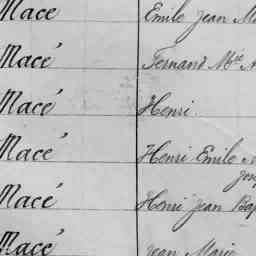 Macé Emile Jean
Macé Fernand Mie
Macé Henri.
Macé Henri Emile
Macé Henri Jean Bap
Macé Jean Marie